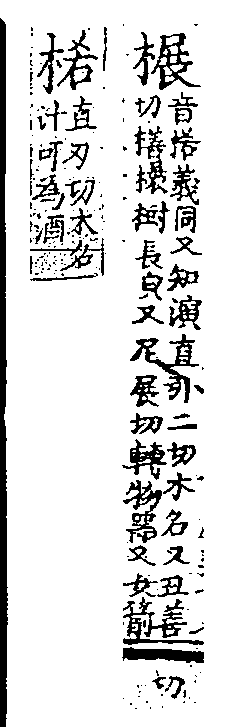 榐
音搭義同又知演直引二切木名又丑善
切樯榐樹長皃又尼展切轉物器又女箭
切
楉
直刃切木名
汁可爲酒